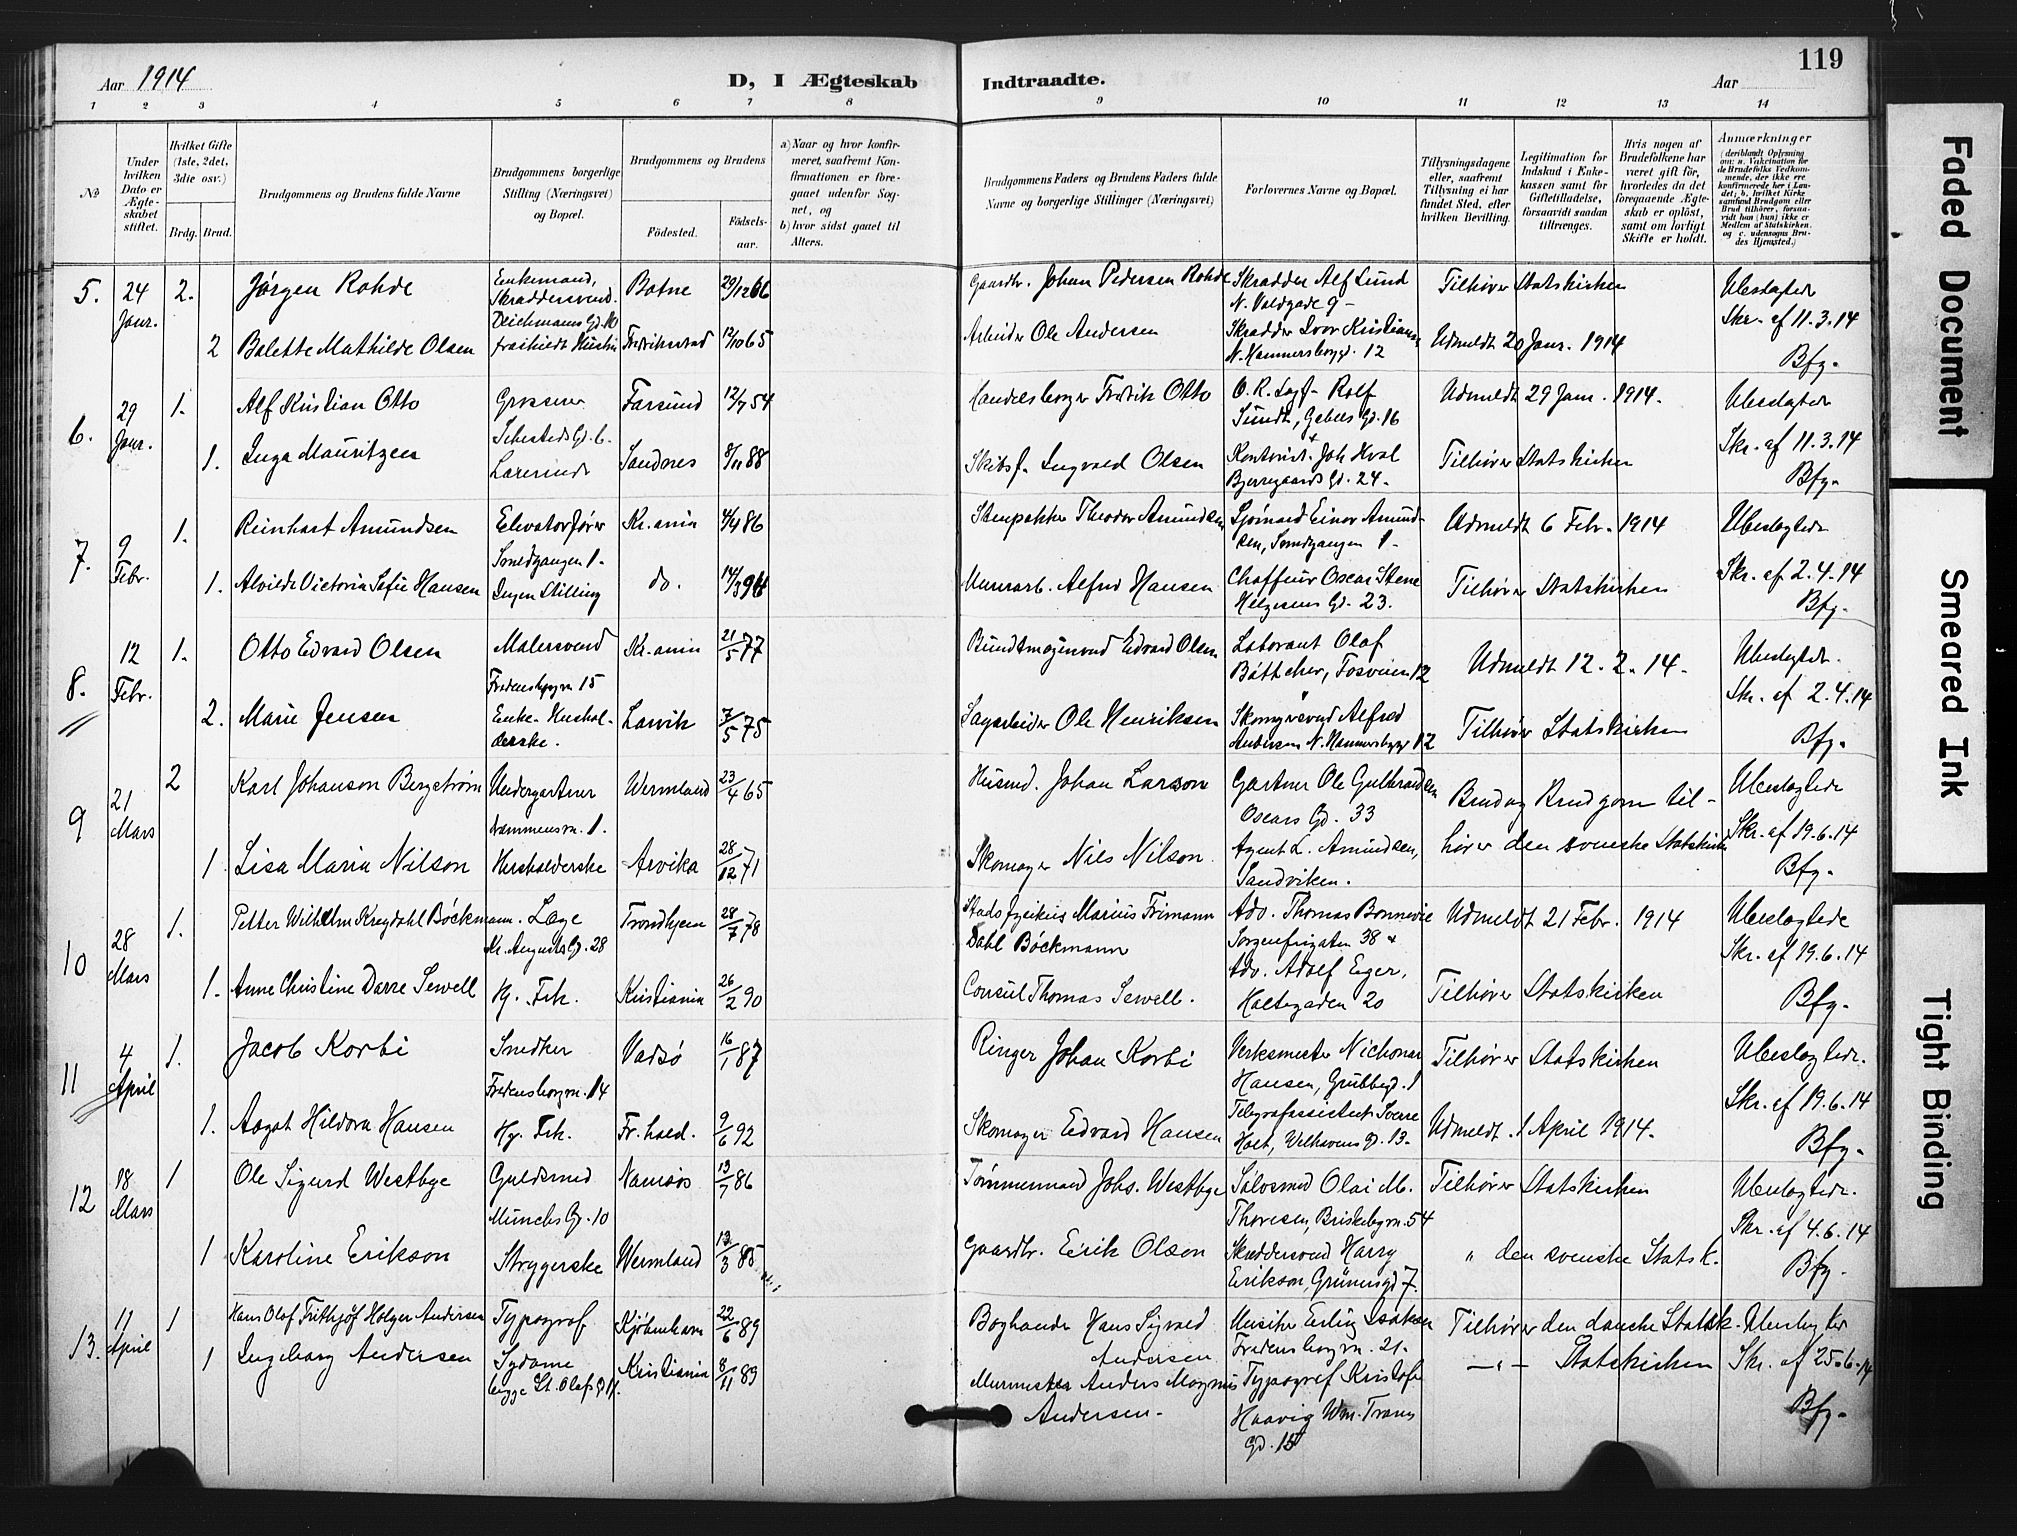 Aar 1914
D, I Ægteskab
Indtraadte.
Aar
119
1 2 3 4 5 6 7 8 9 10 11 12 13 14
№
Under hvilken Dato er Ægteskabet stiftet.
Hvilket Gifte (1ste, 2det, 3die osv.)
Brdg. Brud.
Brudgommens og Brudens fulde Navne
Brudgommens borgerlige Stilling (Næringsvei) og Bopæl.
Brudgommens og Brudens
Födested.
Födsels-aar.
a) Naar og hvor konfirmeret, saafremt Konfirmationen er foregaaet udenfor Sognet, og
b) hvor sidst gaaet til Alters.
Brudgommens Faders og Brudens Faders fulde Navne og borgerlige Stillinger (Næringsvei)
Forlovernes Navne og Bopæl.
Tillysningsdagene eller, saafremt Tillysning ei har fundet Sted, efter hvilken Bevilling.
Legitimation for Indskud i Enkekassen samt for Giftetilladelse, forsaavidt saadan tiltrænges.
Hvis nogen af Brudefolkene har været gift før, hvorledes da det foregaaende Ægteskab er opløst, samt om lovligt Skifte er holdt.
Anmærkninger
5. 24 Janr. 2. Jørgen Rohde Enkemand, Skræddersvend. Deichmans Gd. 10 Botne 29/12 66 Gaardbr. Johan Pedersen Rohde Skrædder Alf Lund N. Voldgade 9 - Tilhører Statskirken Ubeslægtede
Skr. af 11.3.14
2 Bolette Mathilde Olsen fraskildt Hustru Fredrikstad 12/10 65 Arbeider Ole Andersen Skrædder Ivor Kristians N. Hammersborggd. 12 Udmeldt 20 Janr. 1914
Bfg.
6. 29 Janr. 1. Alf Kristian Otto Grosserer Sehesteds Gd. 6. Farsund 12/7 54 Handelsborger Fredrik Otto O. R. Sagf. Rolf Sundt, Gebels Gd. 16 Udmeldt 29 Janr. 1914. Ubeslægtede
Skr. af 11.3.14
1. Inga Mauritzen Lærerinde Sandnes 8/11 88 Skibsf. Ingvald Olsen Kontorist. Joh Hval Bjerregaards Gd. 24. Tilhører Statskirken
Bfg.
7. 9 Febr. 1. Reinhart Amundsen Elevatorfører Smedgangen 1. Kr.ania 4/4 86 Stenpakker Theodor Amundsen Sjømand Einar Amundsen, Smedgangen 1. Udmeldt 6 Febr. 1914 Ubeslægtede
Skr. af 2.4.14
1. Alvilde Victoria Sofie Hansen Ingen Stilling do. 14/3 94 Murerarb. Alfred Hansen Chaffeur Oscar Stene Helgesens Gd. 23. Tilhører Statskirken
Bfg.
8. 12 Febr. 1. Otto Edvard Olsen Malersvend Fredensborgvn 15 Kr.ania 21/5 77 Bundtmagersvend Edvard Olsen Laborant Olaf Bøttcher, Fosveien 12 Udmeldt 12.2.14. Ubeslægtede.
Skr. af 2.4.14
2. Marie Jensen Enke- Husholderske. Larvik 7/5 75 Sagarbeider Ole Henriksen Skomagersvend Alfred Andersen N. Hammersbggd 12 Tilhører Statskirken
Bfg.
9 21 Mars 2 Karl Johanson Bergstrøm Undergartner Drammensvn. 1. Wermland 23/4 65 Husmd. Johan Larsson Gartner Ole Gulbrandsen Oscars Gd. 33 Brud og Brudgom til- Ubeslægtede
Skr. af 19.6.14
1 Lisa Maria Nilson Husholderske Arvika 28/12 71 Skomager Nils Nilson Agent L. Amundsen, Sandviken. hører den svenske Statskirke
Bfg.
10 28 Mars 1. Petter Wilhelm Kreydahl Bøckmann. Læge Kr. Augusts Gd. 28 Trondhjem 28/7 78 Stadsfysikus Marius Frimann Dahl Bøckmann Adv. Thomas Bonnevie Sorgenfrigaten 38 & Udmeldt 21 Febr. 1914 Ubeslægtede
Skr. af 19.6.14
1. Anne Christine Darre Sewell Hj. Frk. Kristiania 26/2 90 Consul Thomas Sewell. Adv. Adolf Eger, Holtegaden 20 Tilhører Statskirken
Bfg.
11 4 April 1. Jacob Korbi Snedker Fredensborgvn. 14 Vadsø 16/1 87 Ringer Johan Korbi Verksmester Hansen, Grubbegd. 1 Tilhører Statskirken Ubeslægtede.
Skr. af 19.6.14
1. Aagot Hildora Hansen Hj. Frk. Fr.hald. 9/6 92 Skomager Edvard Hansen Telegrafassistent Sverre Holt, Welhavens Gd. 13. Udmeldt. 1 April 1914.
Bfg.
12 18 Mars 1 Ole Sigurd Westbye Guldsmed Munchs Gd. 10 Namsos 13/7 86 Tømmermand Johs. Westbye Sølvsmed Olai M. Thoresen, Briskebyvn. 54 Tilhører Statskirken Ubeslægtede.
Skr. af 4.6.14
1 Karoline Erikson Strygerske Wermland 13/3 85 Gaardbr. Eerik Olson Skræddersvend Harry Erikson, Grünersgd 7. " den svenske Statsk.
Bfg.
13. 11 April 1 Hans Olaf Frithjof Holger Andersen Typograf Kjøbenhavn 22/6 89 Boghandler Hans Sigvald Andersen Musiker Erling Isaksen Fredensborgvn. 21. Tilhører den danske Statsk. Ubeslægtede
Skr. af 25.6.14
1 Ingeborg Andersen Sydame begge St. Olafs Gd. Kristiania 8/11 89 Murmester Anders Magnus Andersen. Typograf Kristofer Haavig Wm. Trans Gd. 15 -"- Statskirken
Bfg.
Faded Document
Smeared Ink
Tight Binding